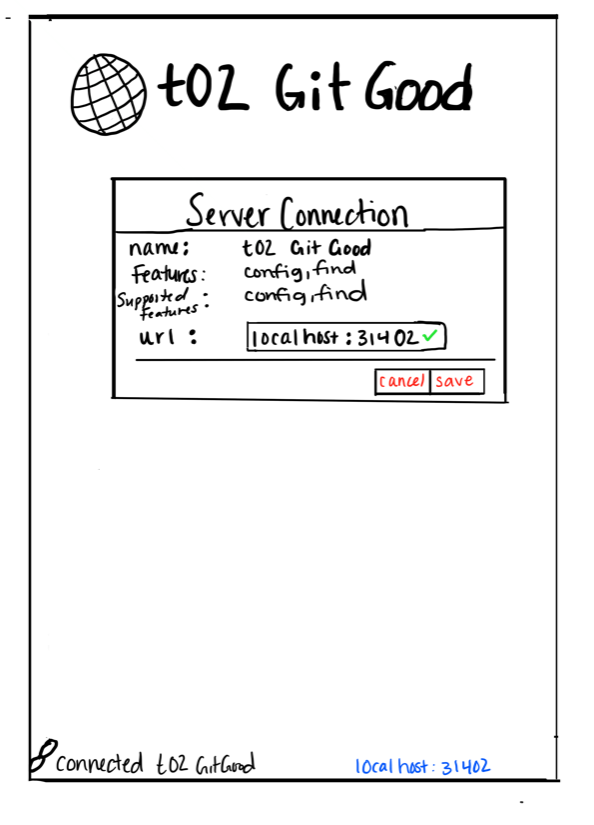 t02 Git Good
Server Connection
name: t02 Git Good
Features: config, find
Supported Features: config, find
url: localhost:31402
cancel save
connected t02 GitGood localhost:31402